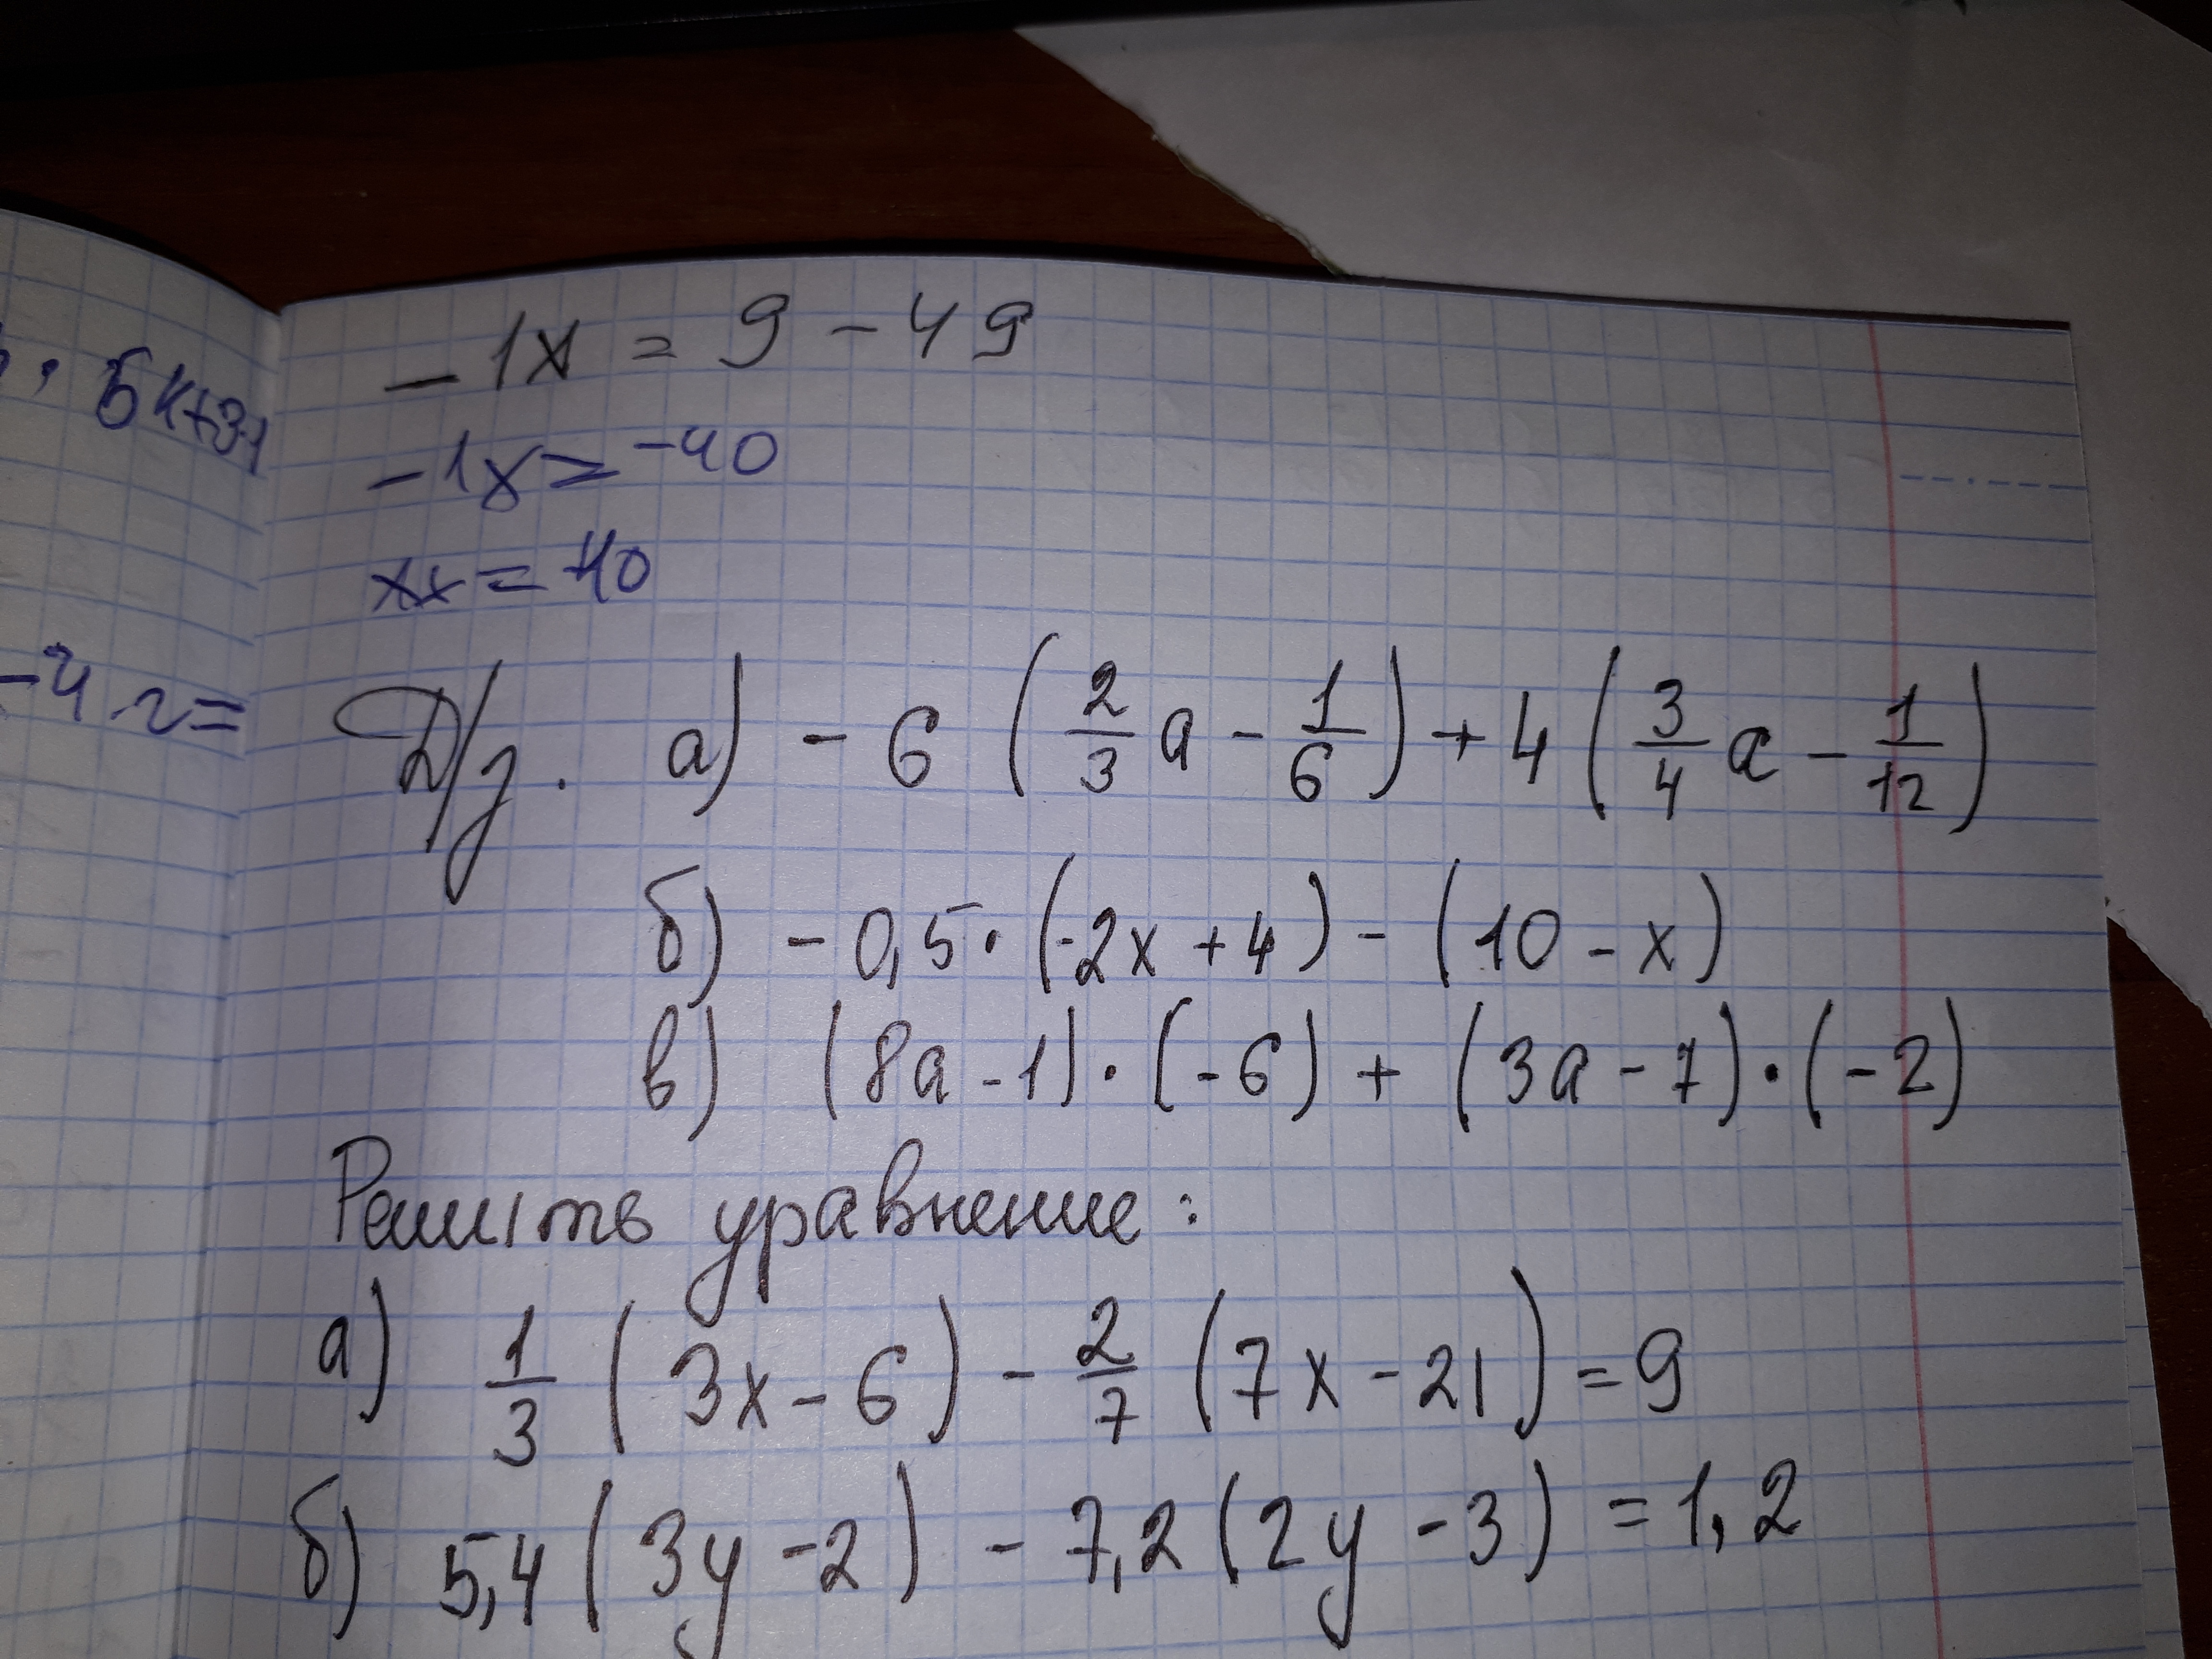 -1x = 9 - 49
-1x = -40
xx = 40
-4 г =
Д/з. а) - 6 (2/3 a - 1/6) + 4 (3/4 a - 1/12)
б) - 0,5 · (-2x + 4) - (10 - x)
в) (8a - 1) · (-6) + (3a - 7) · (-2)
Решить уравнение:
а) 1/3 (3x - 6) - 2/7 (7x - 21) = 9
б) 5,4 (3y - 2) - 7,2 (2y - 3) = 1,2